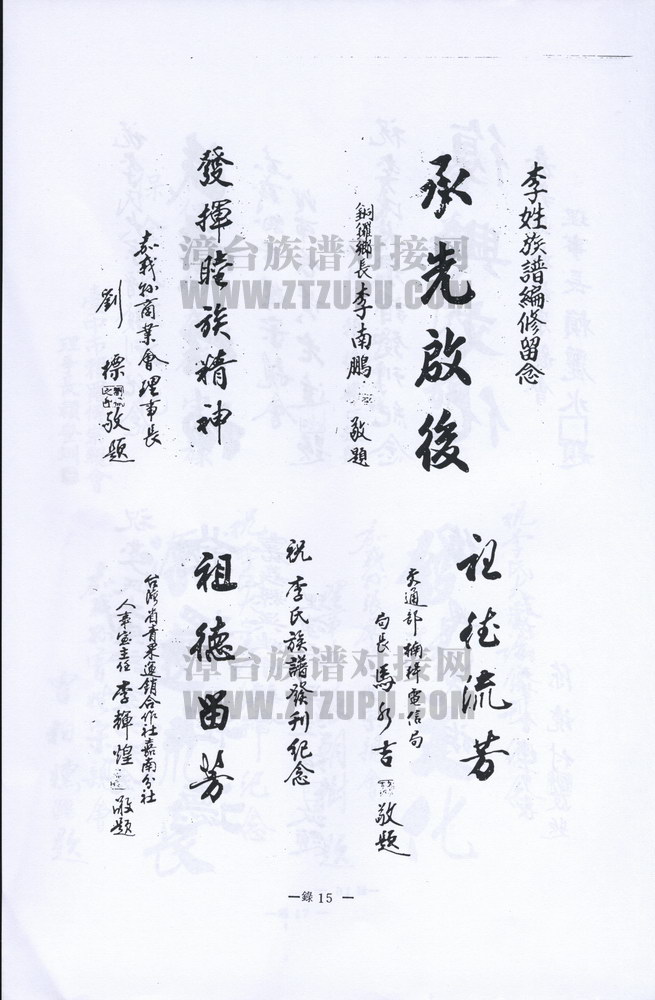 李姓族譜編修留念
承先啟後
銅鑼鄉長李南鵬
敬題
發揮睦族精神
嘉義縣商業會理事長
劉標
敬題
祖德流芳
交通部楠梓電信局
局長馬永吉
敬題
祝李氏族譜發刊紀念
祖德留芳
台灣省青果運銷合作社嘉南分社
人事室主任李輝煌
敬題
漳台族谱对接网
WWW.ZTZUPU.COM
漳台族谱对接网
WWW.ZTZUPU.COM
—錄 15 —